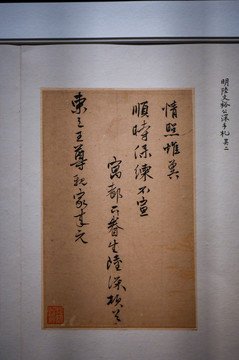 明陆文裕公深手札 其二
情照惟冀
順時保練不宣
寓都下眷生陸深頓首
東之王尊親家年元